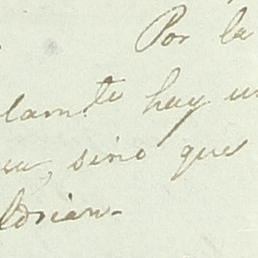 Por la
lam.te hay un
eu, sino que
ldrian-